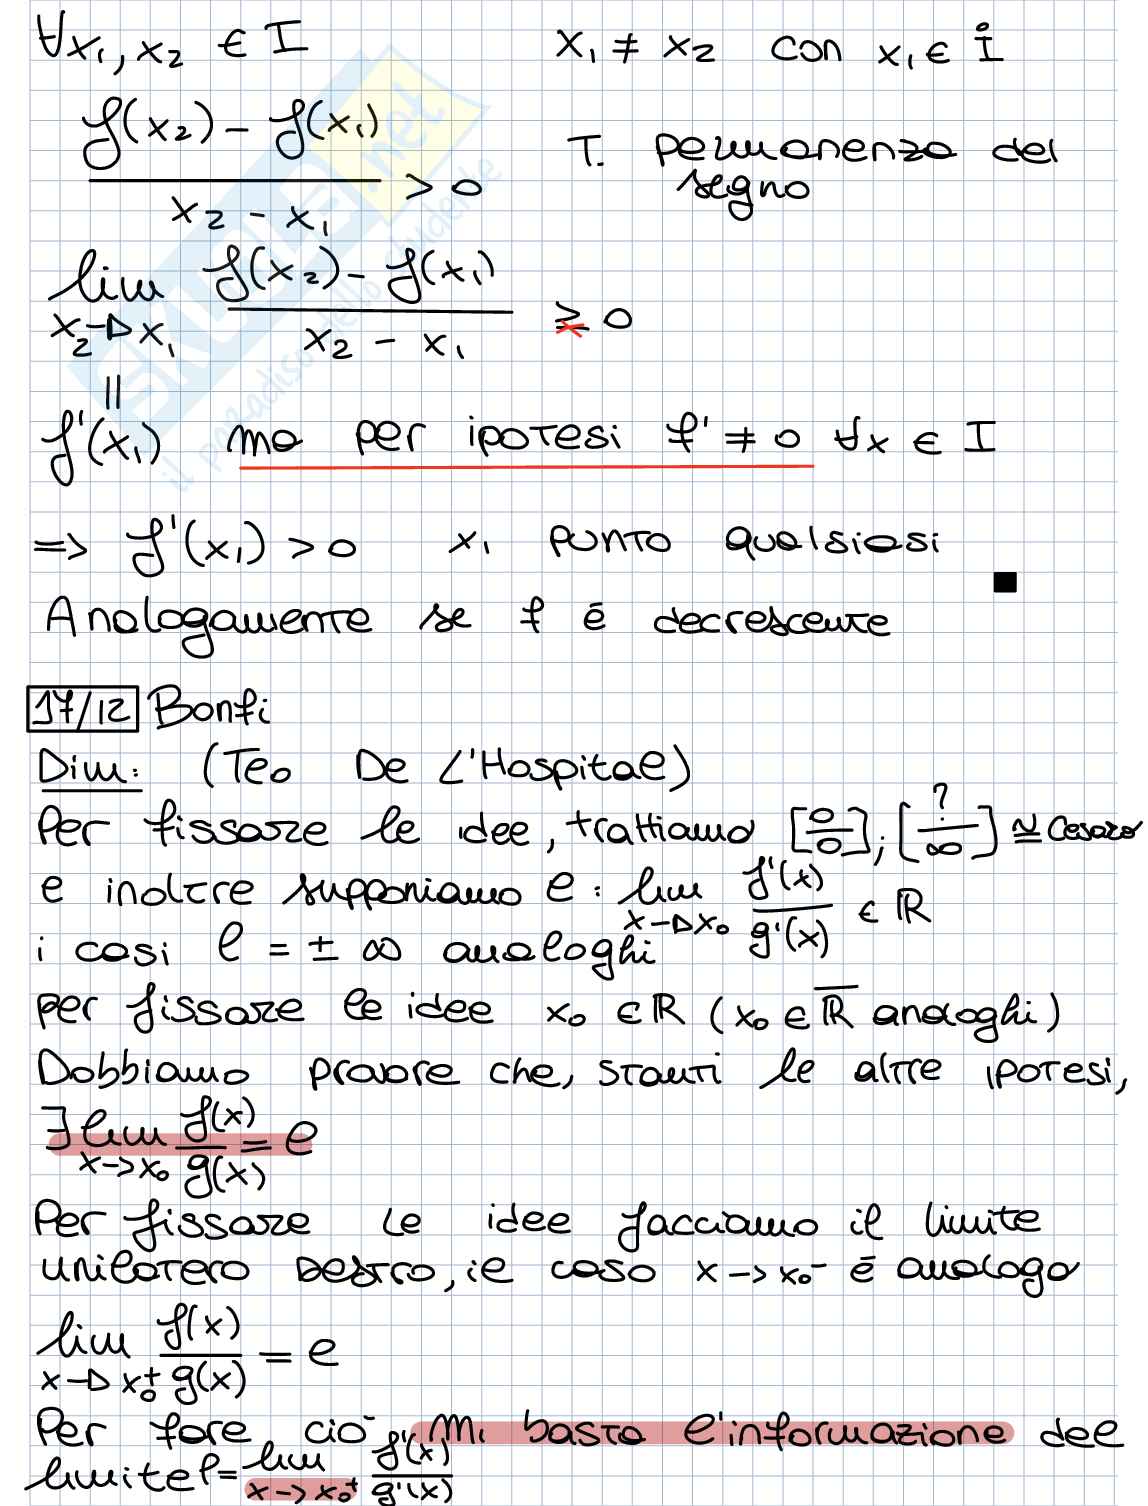 ∀x₁, x₂ ∈ I   x₁ ≠ x₂ con x₁ ∈ I̊
(f(x₂) - f(x₁)) / (x₂ - x₁) > 0   T. permanenza del segno
lim x₂→x₁ (f(x₂) - f(x₁)) / (x₂ - x₁) ≥ 0
=
f'(x₁) ma per ipotesi f' ≠ 0 ∀x ∈ I
=> f'(x₁) > 0   x₁ punto qualsiasi
■
Analogamente se f è decrescente
17/12 Bonfi
Dim: (Teo De L'Hospital)
Per fissare le idee, trattiamo [0/0]; [?/∞] ≅ Cesaro
e inoltre supponiamo l : lim x→x₀ f'(x)/g'(x) ∈ ℝ
i casi l = ± ∞ analoghi
per fissare le idee x₀ ∈ ℝ (x₀ ∈ ℝ̅ analoghi)
Dobbiamo provare che, stanti le altre ipotesi,
∃ lim x→x₀ f(x)/g(x) = l
Per fissare le idee facciamo il limite
unilatero destro, il caso x→x₀⁻ è analogo
lim x→x₀⁺ f(x)/g(x) = l
Per fare ciò mi basta l'informazione del
limite l = lim x→x₀⁺ f'(x)/g'(x)
SKUOLA.net
il paradiso dello studente